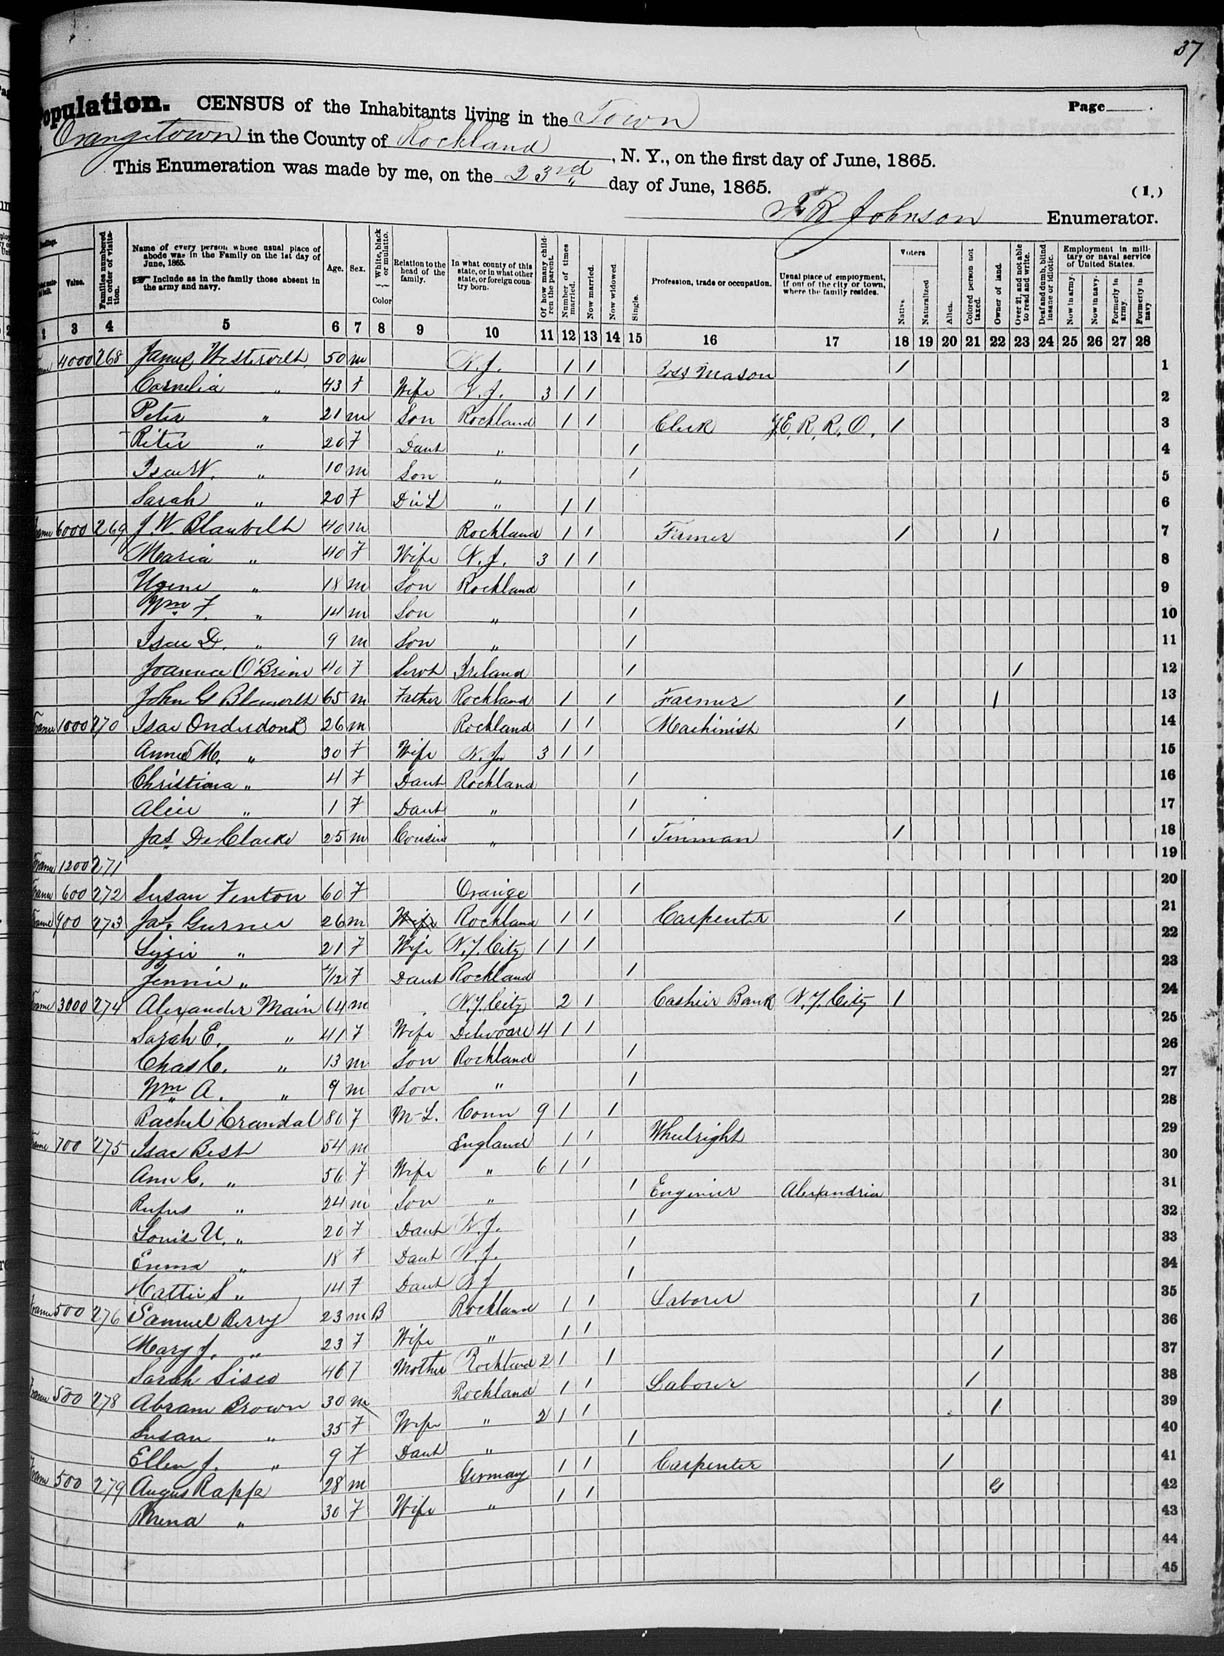 37
Population. CENSUS of the Inhabitants living in the Town Page
Orangetown in the County of Rockland, N. Y., on the first day of June, 1865.
This Enumeration was made by me, on the 23rd day of June, 1865. (1.)
Johnson Enumerator.
Value. Families numbered in order of visitation. Name of every person whose usual place of abode was in the Family on the 1st day of June, 1865. Include as in the family those absent in the army and navy. Age. Sex. Color White, black or mulatto. Relation to the head of the family. In what county of this state, or in what other state, or foreign country born. Of how many children the parent. Number of times married. Now married. Now widowed. Single. Profession, trade or occupation. Usual place of employment, if out of the city or town, where the family resides. Voters. Native. Naturalized. Alien. Colored person not taxed. Owner of land. Over 21, and not able to read and write. Deaf and dumb, blind insane or idiotic. Employment in military or naval service of United States. Now in army. Now in navy. Formerly in army. Formerly in navy
3 4 5 6 7 8 9 10 11 12 13 14 15 16 17 18 19 20 21 22 23 24 25 26 27 28
4000 268 James Westervelt 50 m N. J. 1 1 Boss Mason 1 1
Cornelia " 43 f Wife N. J. 3 1 1 2
Peter " 21 m Son Rockland 1 1 Clerk E. R. R. O. 1 3
" 20 F Daut " 1 4
Isac W. " 10 m Son " 1 5
Sarah " 20 F D in L " 1 1 6
Frame 6000 269 J. W. Blauvelt 40 m Rockland 1 1 Farmer 1 1 7
Maria " 40 F Wife N. J. 3 1 1 8
Ugene " 18 m Son Rockland 1 9
Wm F. " 14 m Son " 1 10
Isac D. " 9 m Son " 1 11
Joanna O'Brien 40 F Servt Ireland 1 1 12
John G Blauvelt 65 m Father Rockland 1 1 Farmer 1 1 13
Frame 1000 270 Isac Onderdonk 26 m Rockland 1 1 Machinist 1 14
Anna M. " 30 F Wife N. J. 3 1 1 15
Christiana " 4 F Daut Rockland 1 16
Alice " 1 F Daut " 1 17
Jas De Clarke 25 m Cousin " 1 Tinman 1 18
Frame 1200 271 19
Frame 600 272 Susan Fenton 60 F Orange 1 20
Frame 900 273 Jas. Gurnee 26 m Wife Rockland 1 1 Carpenter 1 21
Lizzie " 21 F Wife N. Y. City 1 1 1 22
Jennie " /12 F Daut Rockland 1 23
Frame 3000 274 Alexander Main 64 m N. Y. City 2 1 Cashier Bank N. Y. City 1 24
Sarah E. " 41 F Wife Delware 4 1 1 25
Chas C. " 13 m Son Rockland 1 26
Wm A. " 9 m Son " 1 27
Rachel Crandal 80 F M-L. Conn 9 1 1 28
Frame 700 275 Isac Best 54 m England 1 1 Wheelright 29
Ann C. " 56 F Wife " 6 1 1 30
Rufus " 24 m Son " 1 Enginier Alexandria 31
Louis U. " 20 F Daut N. J. 1 32
Emma " 18 F Daut N. J. 1 33
Hattie S " 14 F Daut N J 1 34
Frame 500 276 Samuel Berry 23 m B Rockland 1 1 Laborer 1 35
Mary J. " 23 F Wife " 1 1 36
Sarah Sisco 46 F Mother Rockland 2 1 1 1 37
Frame 500 278 Abram Brown 30 m Rockland 1 1 Laborer 1 38
Susan " 35 F Wife " 2 1 1 1 39
Ellen J. " 9 F Daut " 1 40
Frame 500 279 Augus Rapp 28 m Germany 1 1 Carpenter 1 41
" 30 F Wife " 1 1 42
43
44
45